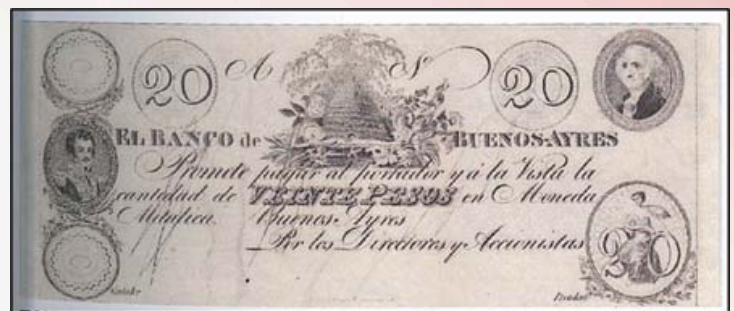 20 A N 20
EL BANCO de BUENOS-AYRES
Promete pagar al portador y á la Vista la
cantidad de VEINTE PESOS en Moneda
Metalica. Buenos-Ayres
Por los Directores y Accionistas
20